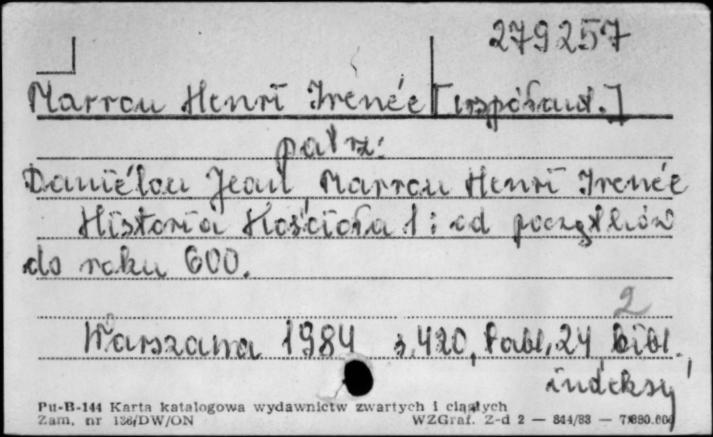 279257
Marrou Henri Irenée [współaut.]
patrz:
Daniélou Jean, Marrou Henri Irenée
Historia Kościoła 1: od początków
do roku 600.
2
Warszawa 1984 s. 420, tabl. 24, bibl.,
indeksy
Pu-B-144 Karta katalogowa wydawnictw zwartych i ciągłych
Zam. nr 136/DW/ON WZGraf. Z-d 2 — 844/83 —